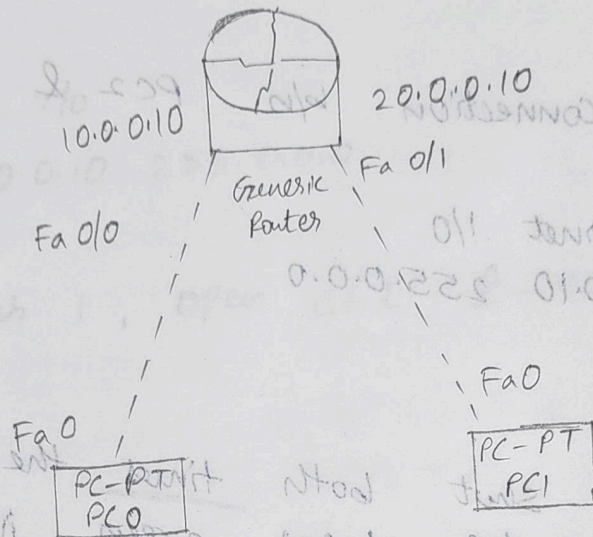 10.0.0.10
20.0.0.10
Generic
Router
Fa 0/0
Fa 0/1
Fa0
PC-PT
PC0
Fa0
PC-PT
PC1